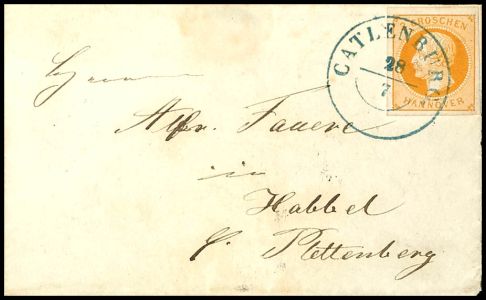 GROSCHEN
CATLENBURG
28
7
HANNOVER
Herrn
Alfr.
in
Habbel
b. Plettenberg